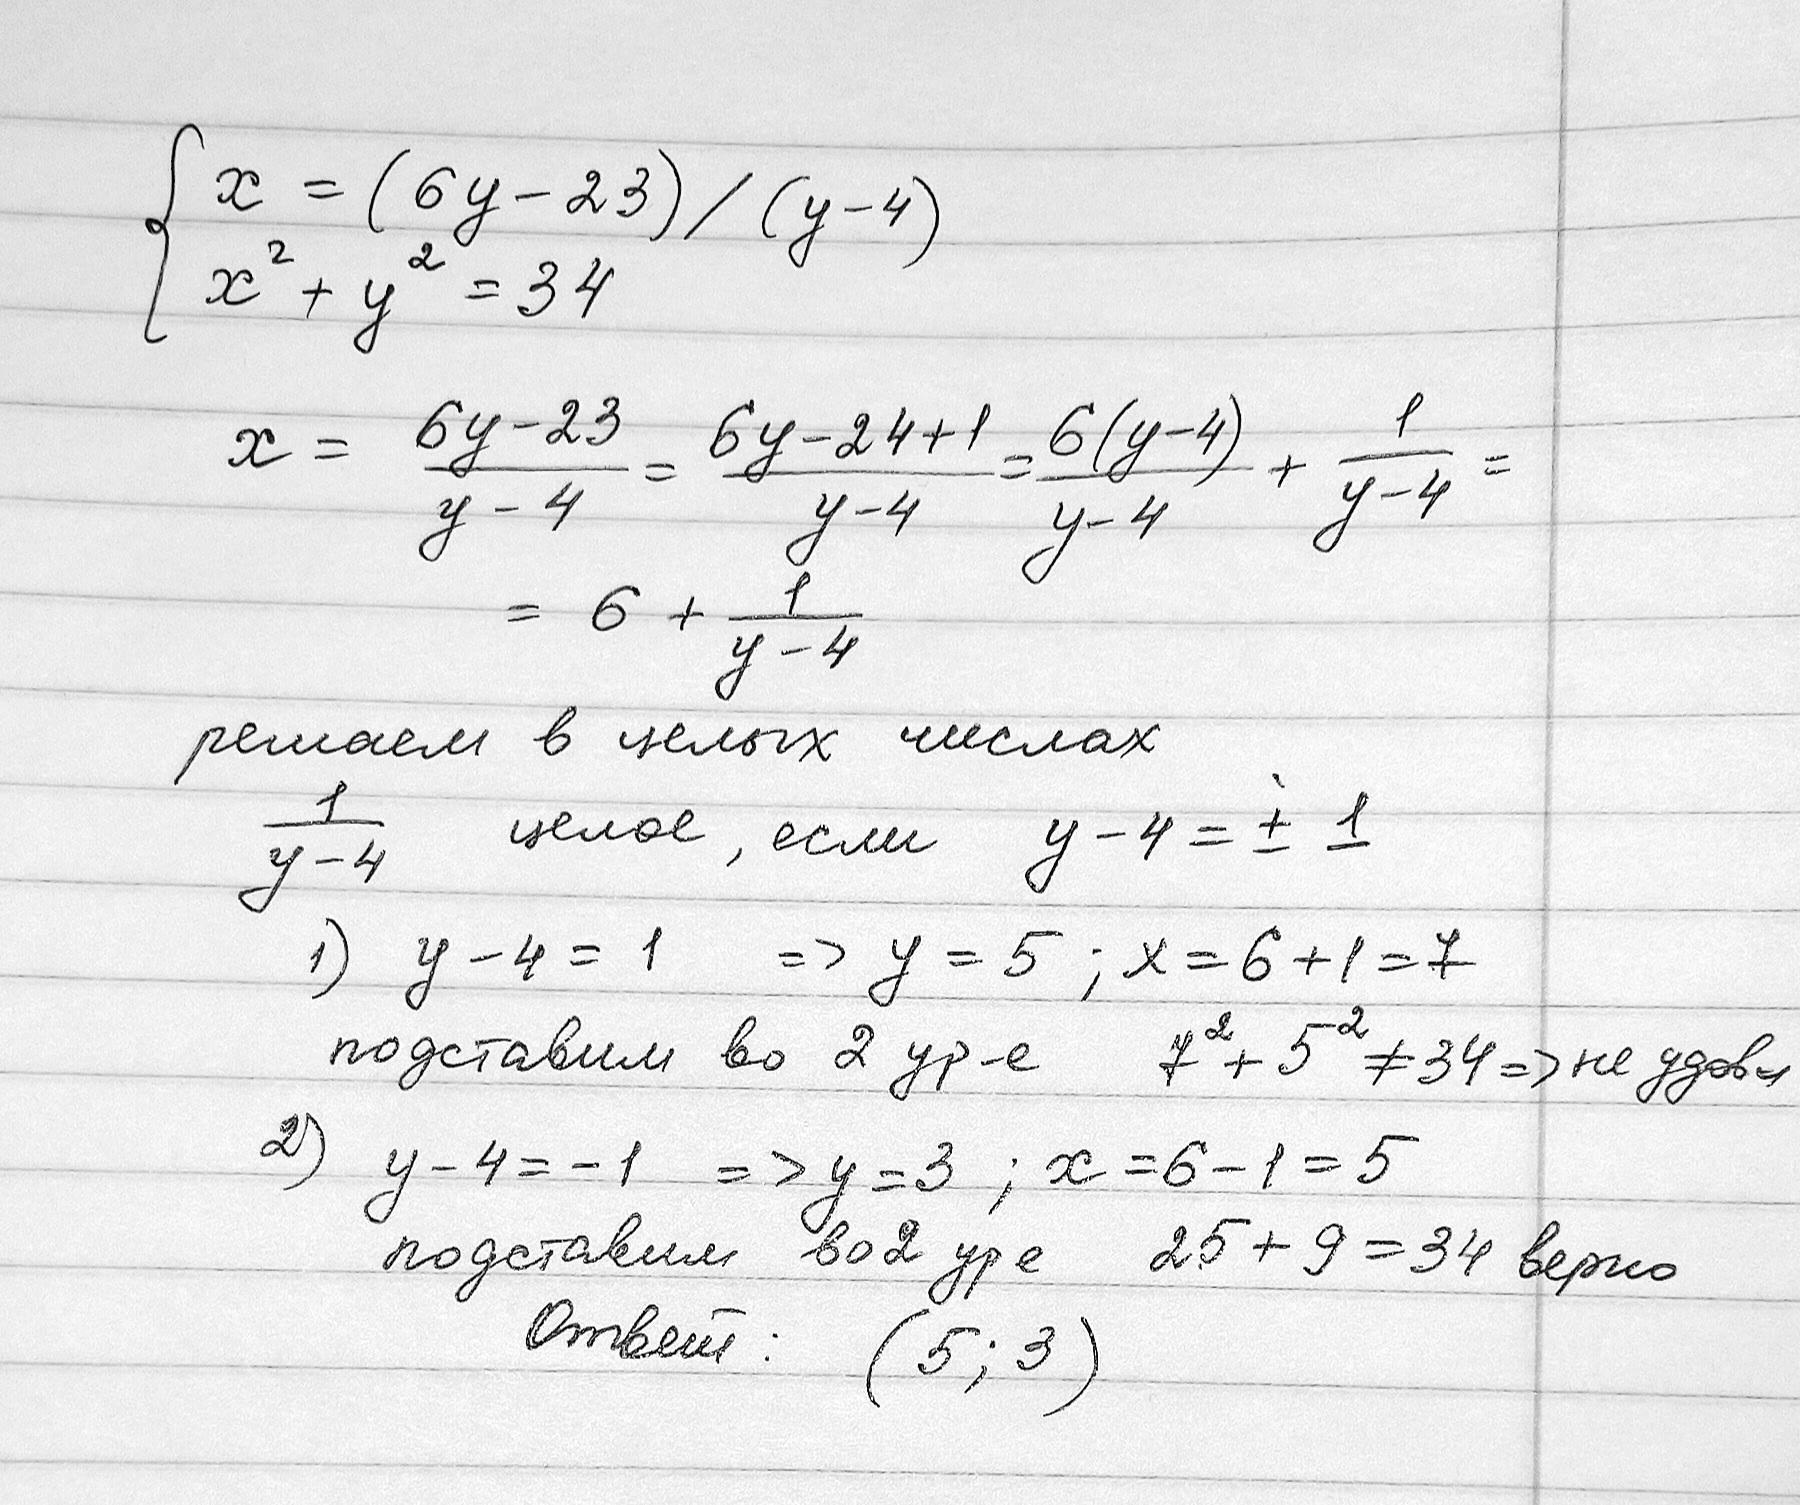 { x = (6y - 23) / (y - 4)
x² + y² = 34
x = \frac{6y - 23}{y - 4} = \frac{6y - 24 + 1}{y - 4} = \frac{6(y - 4)}{y - 4} + \frac{1}{y - 4} =
= 6 + \frac{1}{y - 4}
решаем в целых числах
\frac{1}{y - 4} целое, если y - 4 = ± 1
1) y - 4 = 1 => y = 5 ; x = 6 + 1 = 7
подставим во 2 ур-е 7² + 5² ≠ 34 => не удовл
2) y - 4 = - 1 => y = 3 ; x = 6 - 1 = 5
подставим во 2 ур е 25 + 9 = 34 верно
Ответ: (5; 3)